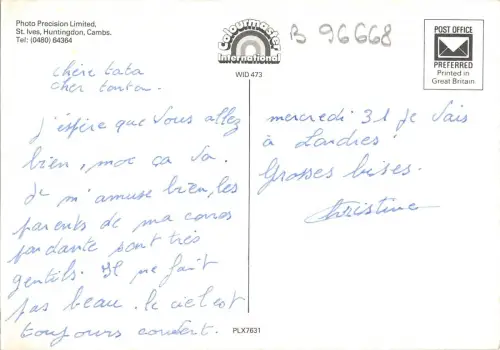 Photo Precision Limited,
St. Ives, Huntingdon, Cambs.
Tel: (0480) 64364
Colourmaster
International
WID 473
B 96668
POST OFFICE
PREFERRED
Printed in
Great Britain
chère tata
cher tonton.
J'espère que vous allez
bien, moi ça va.
Je m'amuse bien, les
parents de ma corres
pondante sont très
gentils. Il ne fait
pas beau. le ciel est
toujours couvert.
mercredi 31 je vais
à Londres!
Grosses bises.
Christine
PLX7631